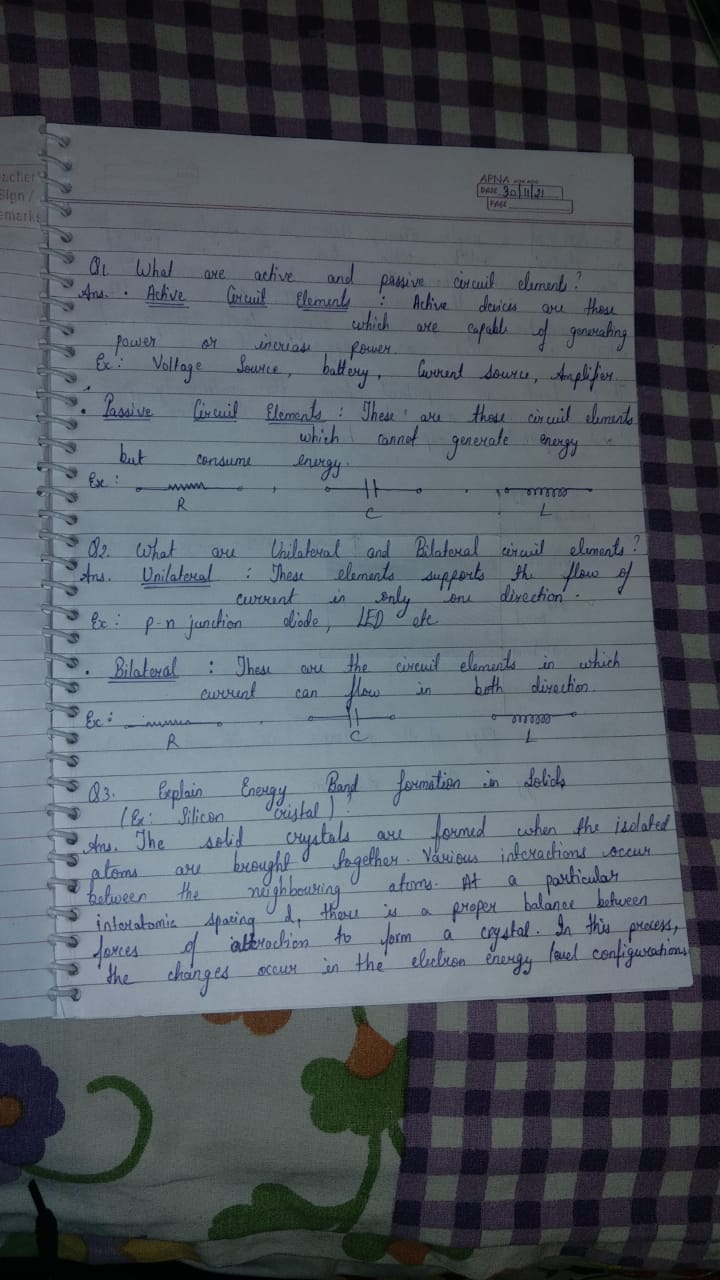 acher
Sign /
emarks
APNA
DATE 30/11/21
PAGE
Q1. What are active and passive circuit elements?
Ans. • Active Circuit Elements : Active devices are those
which are capable of generating
power or increase power.
Ex: Voltage Source, battery, Current source, Amplifier
• Passive Circuit Elements : These are those circuit elements
which cannot generate energy
but consume energy.
Ex :
R C L
Q2. What are Unilateral and Bilateral circuit elements?
Ans. Unilateral : These elements supports the flow of
current in only one direction.
Ex : p-n junction diode, LED etc.
• Bilateral : These are the circuit elements in which
current can flow in both direction.
Ex :
R C L
Q3. Explain Energy Band formation in Solids
(Ex: Silicon cristal)?
Ans. The solid crystals are formed when the isolated
atoms are brought together. Various interactions occur
between the neighbouring atoms. At a particular
interatomic spacing d, there is a proper balance between
forces of attraction to form a crystal. In this process,
the changes occur in the electron energy level configurations